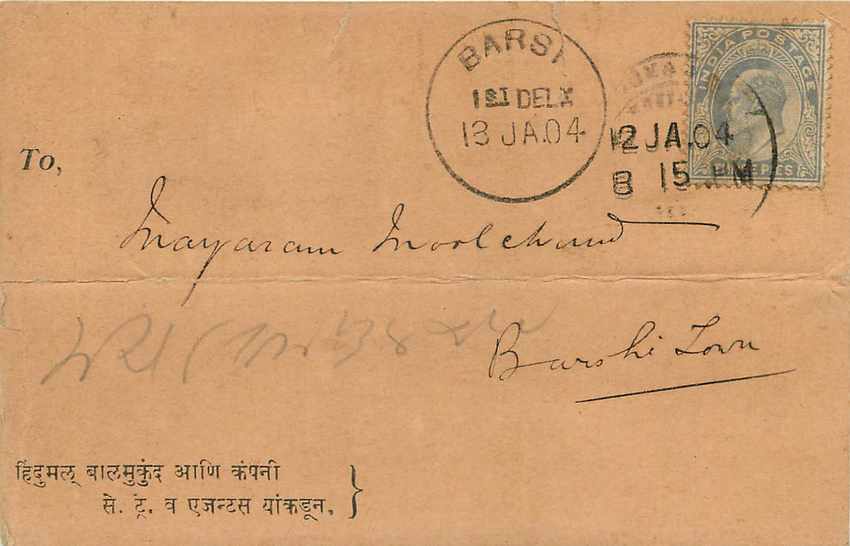 BARSI
1ST DELY
13 JA.04
12 JA.04
8 15 PM
INDIA POSTAGE
To,
Mayaram Moolchand
Barshi Town
हिंदुमल् बालमुकुंद आणि कंपनी
से. ट्रं. व एजन्टस यांकडून,